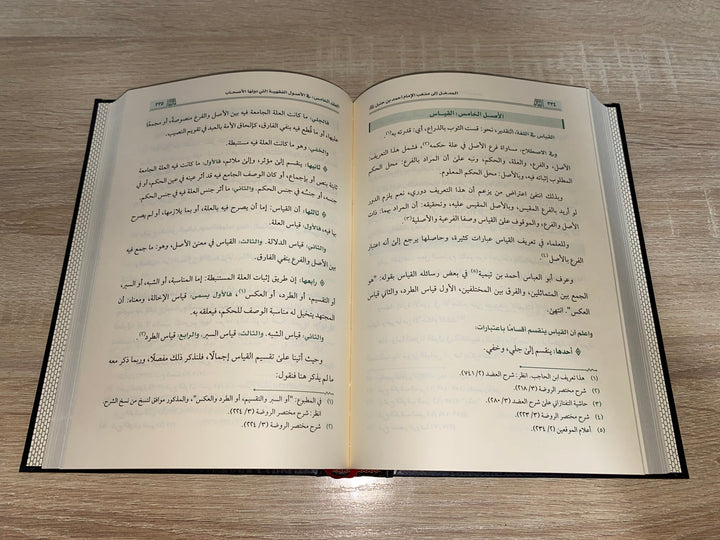 ٢٣٤
المدخل إلى مذهب الإمام أحمد بن حنبل
الأصل الخامس: القياس
القياس في اللغة: التقدير، نحو: قست الثوب بالذراع، أي: قدرته به(١).
وفي الاصطلاح: مساواة فرع الأصل في علة حكمه(٢)، فشمل هذا التعريف:
الأصل، والفرع، والعلة، والحكم، ونبه على أن المراد بالفرع: محل الحكم
المطلوب إثباته فيه، وبالأصل: محل الحكم المعلوم.
وبذلك انتفى اعتراض من يزعم أن هذا التعريف دوري، نعم يلزم الدور
لو أريد بالفرع المقيس، وبالأصل المقيس عليه، وتحقيقه: أن المراد بهما: ذات
الأصل والفرع، والموقوف على القياس وصفا الفرعية والأصلية(٣).
وللعلماء في تعريف القياس عبارات كثيرة، وحاصلها يرجع إلى أنه اعتبار
الفرع بالأصل(٤).
وعرف أبو العباس أحمد بن تيمية(٥) في بعض رسائله القياس بقوله: "هو
الجمع بين المتماثلين، والفرق بين المختلفين، الأول قياس الطرد، والثاني قياس
العكس". انتهى.
واعلم أن القياس ينقسم أقسامًا باعتبارات:
أحدها: ينقسم إلى جلي، وخفي.
(١) هذا تعريف ابن الحاجب. انظر: شرح العضد (٢/ ٧٤١)
(٢) شرح مختصر الروضة (٣/ ٢١٨)
(٣) حاشية التفتازاني على شرح العضد (٣/ ٢٨٠)
(٤) شرح مختصر الروضة (٣/ ٢٢٣)
(٥) أعلام الموقعين (٢/ ٢٣٤).
العقد الخامس: في الأصول الفقهية التي دونها الأصحاب
٢٣٥
فالجلي: ما كانت العلة الجامعة فيه بين الأصل والفرع منصوصة، أو مجمعًا
عليها، أو ما قطع فيه بنفي الفارق، كإلحاق الأمة بالعبد في تقويم النصيب.
والخفي: ما كانت العلة فيه مستنبطة.
ثانيها: ينقسم إلى مؤثر، وإلى ملائم، فالأول: ما كانت فيه العلة الجامعة
ثابتة بنص أو بإجماع، أو كان الوصف الجامع فيه قد أثر عينه في عين الحكم، أو في
جنسه، أو جنسُه في جنس الحكم. والثاني: ما أثر جنس العلة فيه في جنس الحكم.
ثالثها: أن القياس: إما أن يصرح فيه بالعلة، أو بما يلازمها، أو لم يصرح
بها فيه، فالأول: قياس العلة.
والثاني: قياس الدلالة. والثالث: القياس في معنى الأصل، وهو: ما جمع فيه
بين الأصل والفرع بنفي الفارق.
رابعها: إن طريق إثبات العلة المستنبطة: إما المناسبة، أو الشبه، أو السبر،
أو التقسيم، أو الطرد، أو العكس(١)، فالأول يسمى: قياس الإخالة، ومعناه: أن
المجتهد يتخيل له مناسبة الوصف للحكم، فيعلقه به.
والثاني: قياس الشبه. والثالث: قياس السبر. والرابع: قياس الطرد(٢).
وحيث أتينا على تقسيم القياس إجمالًا، فلنذكر ذلك مفصلًا، وربما ذكر معه
ما لم يذكر هنا فنقول:
(١) في المطبوع: "أو السبر والتقسيم، أو الطرد والعكس"، والمذكور موافق لنسخ من نسخ الشرح.
انظر: شرح مختصر الروضة (٣/ ٢٢٤)
(٢) شرح مختصر الروضة (٣/ ٢٢٤).